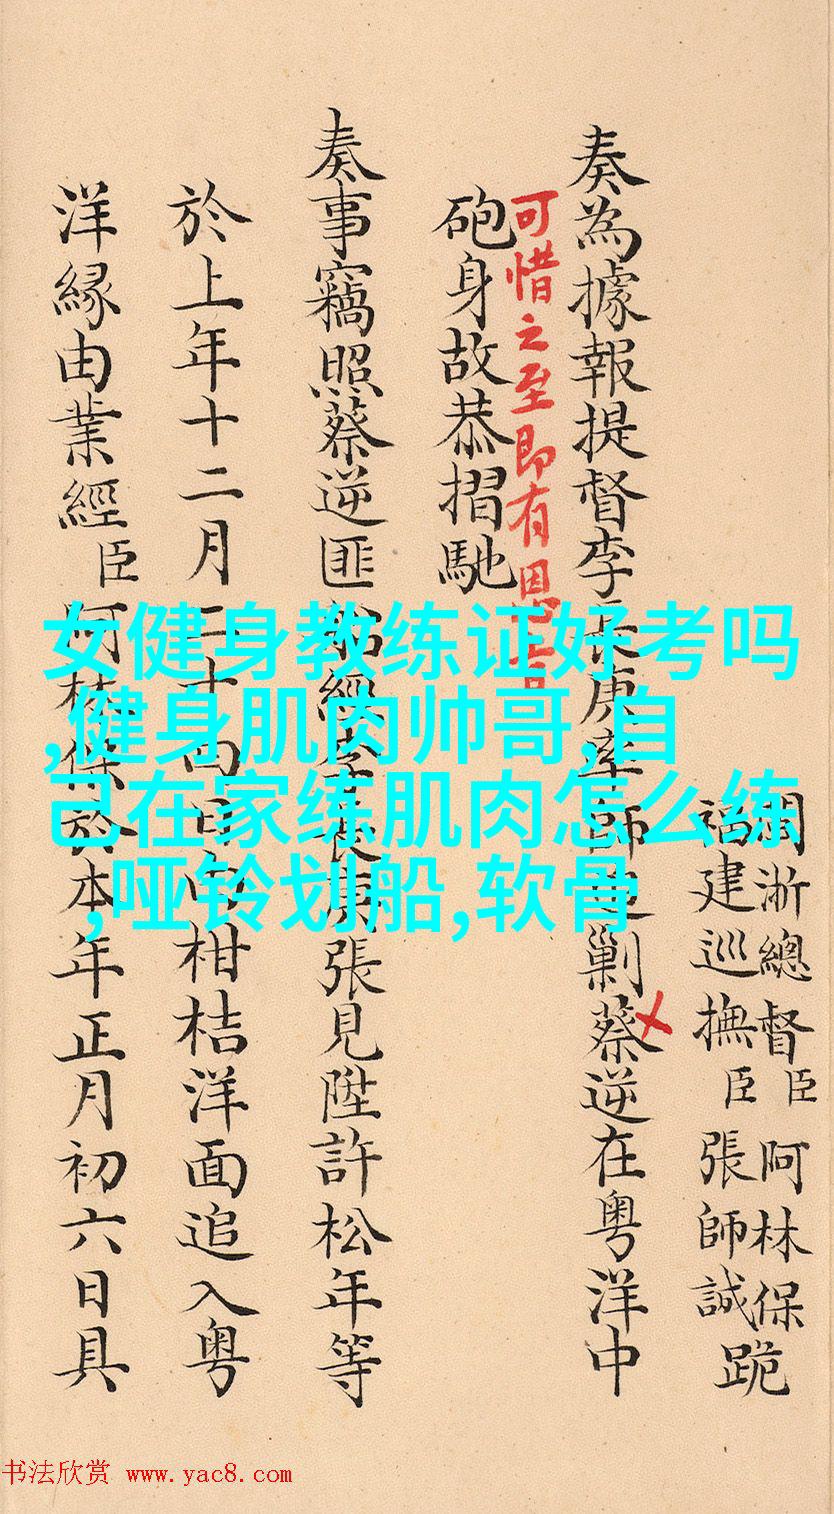 閩浙總督臣阿林保
福建巡撫臣張師誠
跪
奏為據報提督李長庚率師追剿蔡逆在粤洋中
可惜之至即有恩旨
砲身故恭摺馳
奏事竊照蔡逆匪船經李長庚張見陞許松年等
於上年十二月二十四日柑桔洋面追入粤
洋縁由業經臣阿林保於本年正月初六日具
女健身教练证好考吗
,健身肌肉帅哥,自
己在家练肌肉怎么练
,哑铃划船,软骨
书法欣赏 www.yac8.com